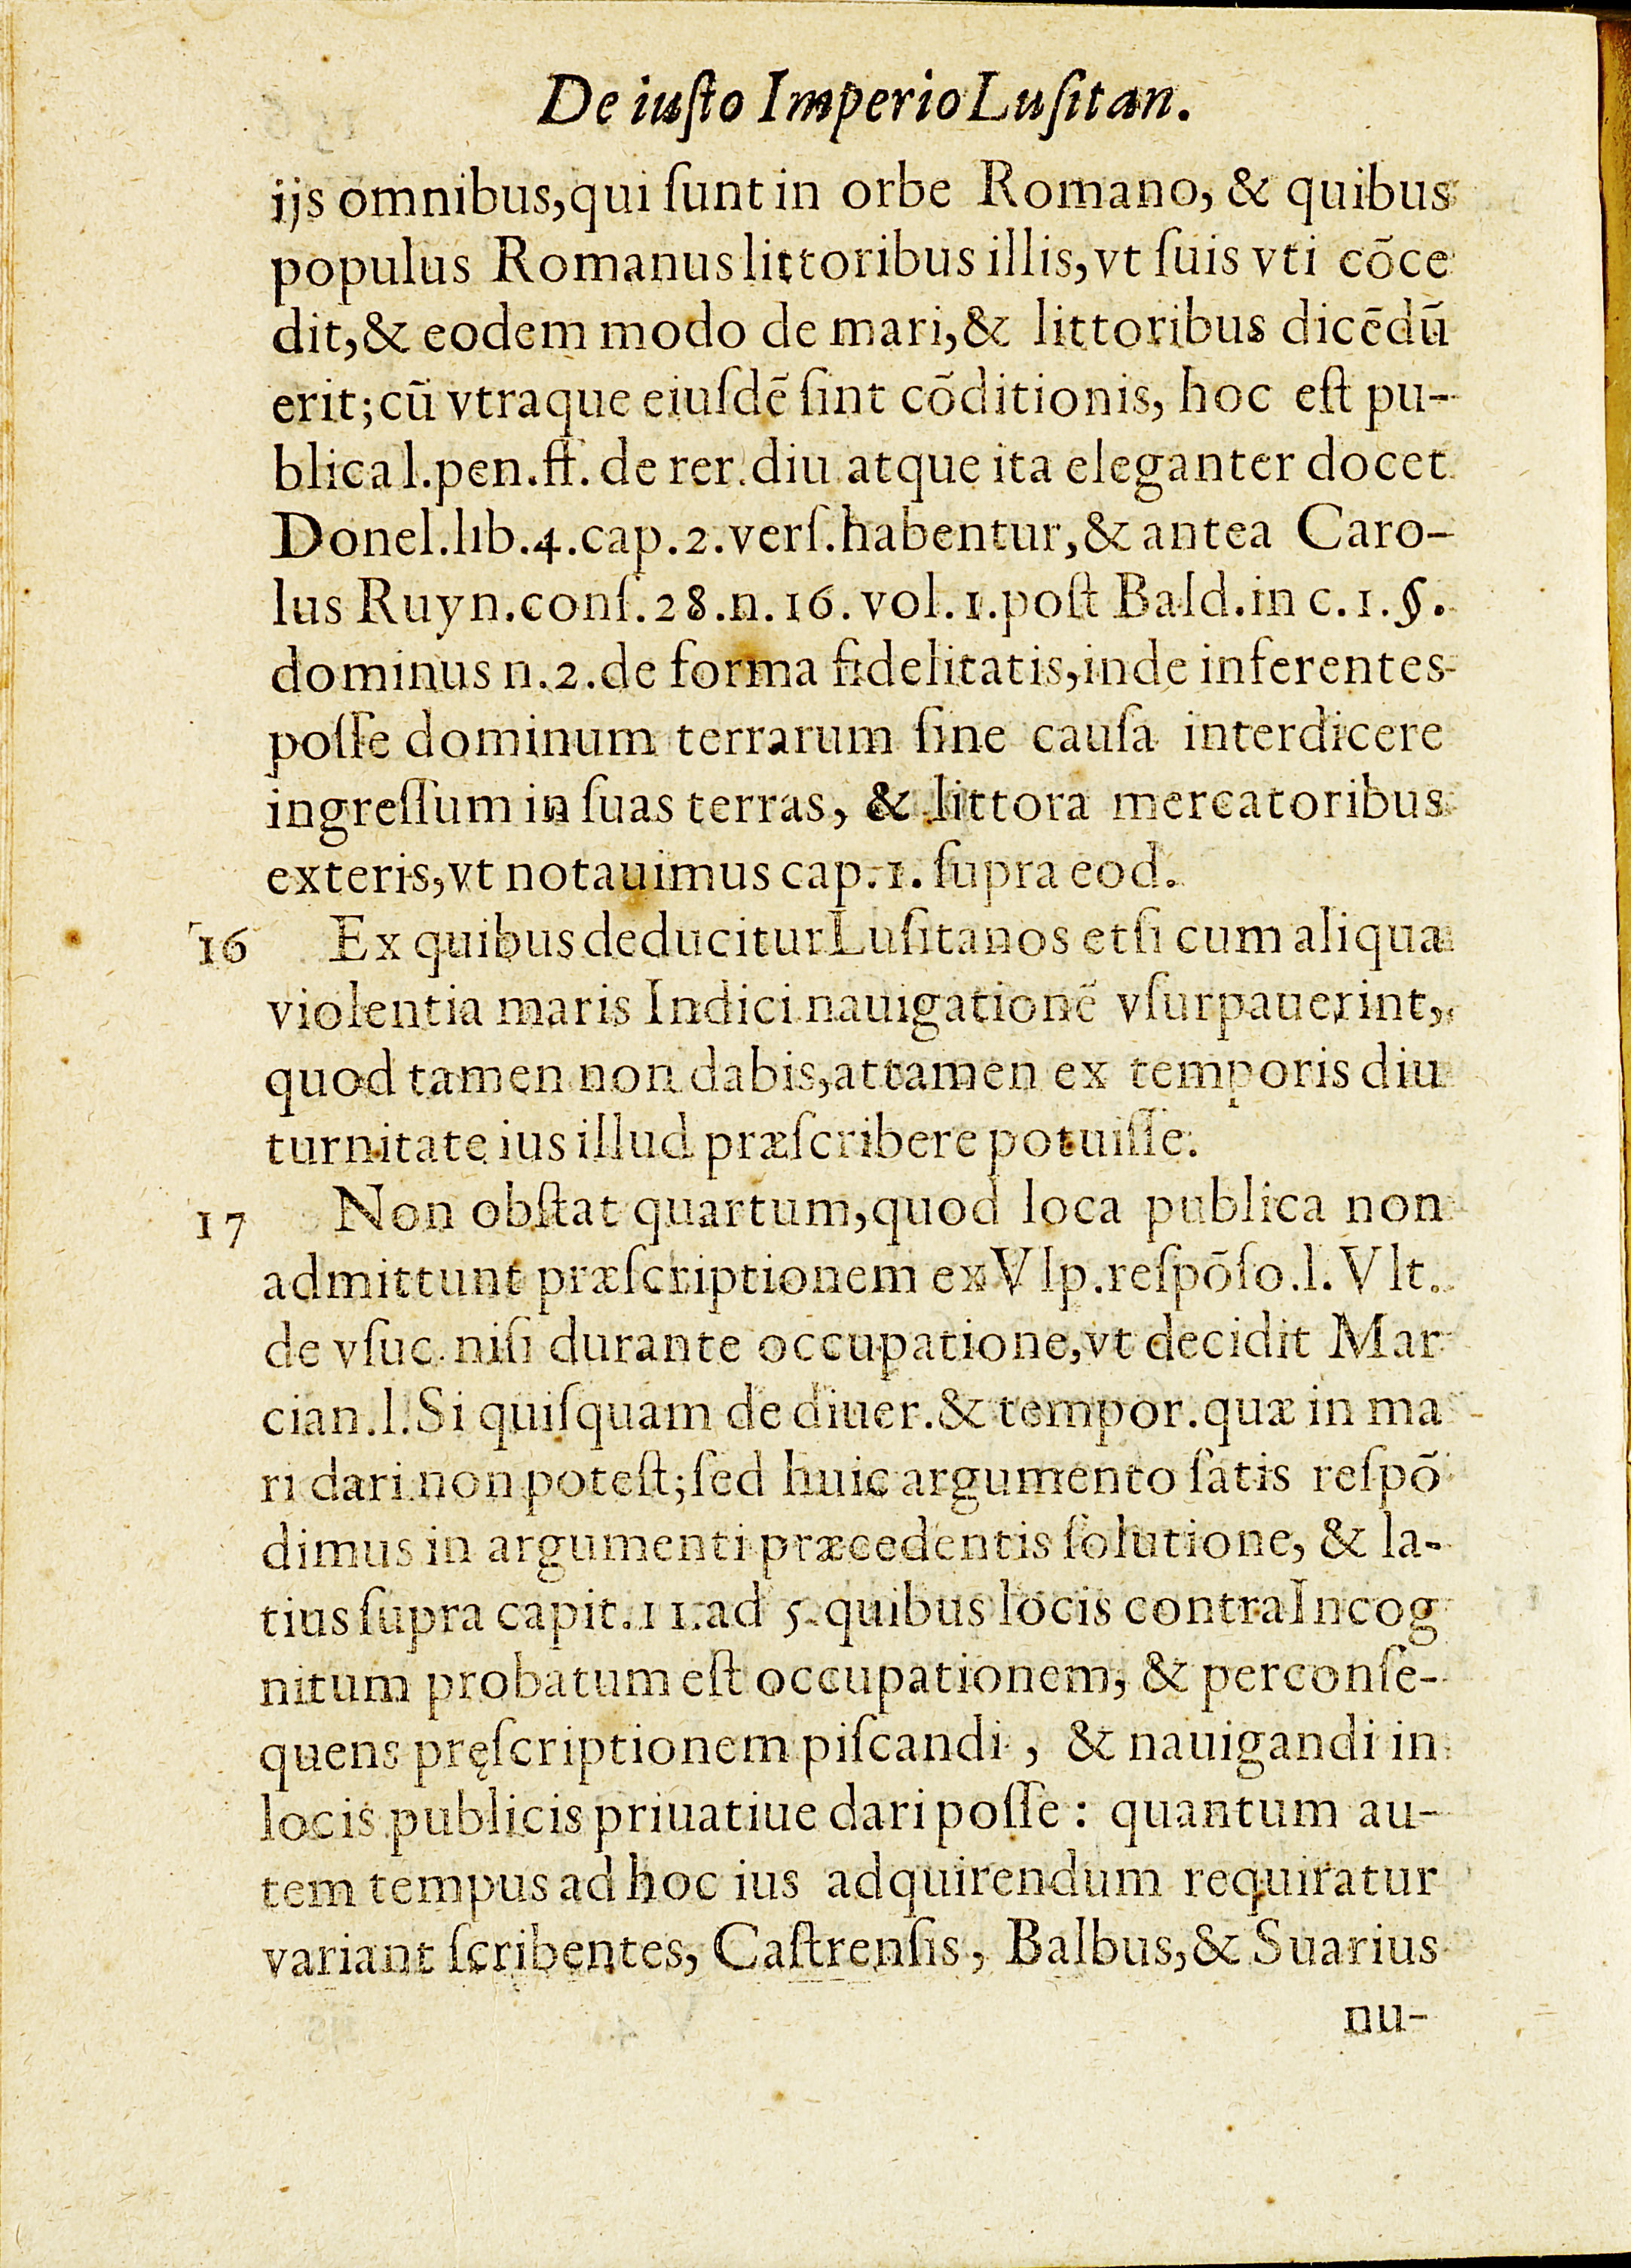 De iuſto Imperio Luſitan.
ijs omnibus, qui ſunt in orbe Romano, & quibus
populus Romanus littoribus illis, vt ſuis vti cōce
dit, & eodem modo de mari, & littoribus dicēdū
erit; cū vtraque eiuſdē ſint cōditionis, hoc eſt pu-
blica l. pen. ff. de rer. diu atque ita eleganter docet
Donel. lib. 4. cap. 2. verſ. habentur, & antea Caro-
lus Ruyn. conſ. 28. n. 16. vol. 1. poſt Bald. in c. 1. §.
dominus n. 2. de forma fidelitatis, inde inferentes
poſſe dominum terrarum ſine cauſa interdicere
ingreſſum in ſuas terras, & littora mercatoribus
exteris, vt notauimus cap. 1. ſupra eod.
16 Ex quibus deducitur Luſitanos etſi cum aliqua
violentia maris Indici nauigationē vſurpauerint,
quod tamen non dabis, attamen ex temporis diu
turnitate ius illud præſcribere potuiſſe.
17 Non obſtat quartum, quod loca publica non
admittunt præſcriptionem ex Vlp. reſpōſo. l. Vlt.
de vſuc. niſi durante occupatione, vt decidit Mar
cian. l. Si quiſquam de diuer. & tempor. quæ in ma
ri dari non poteſt; ſed huic argumento ſatis reſpō
dimus in argumenti præcedentis ſolutione, & la-
tius ſupra capit. 11. ad 5. quibus locis contra Incog
nitum probatum eſt occupationem, & perconſe-
quens pręſcriptionem piſcandi, & nauigandi in
locis publicis priuatiue dari poſſe: quantum au-
tem tempus ad hoc ius adquirendum requiratur
variant ſcribentes, Caſtrenſis, Balbus, & Suarius
nu-